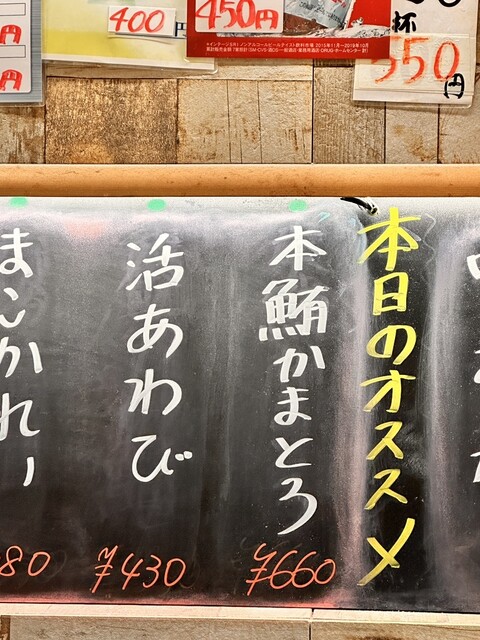 400円
450円
550円
杯
本日のオススメ
本鮪かまとろ
¥660
活あわび
¥430
まんかれー
80